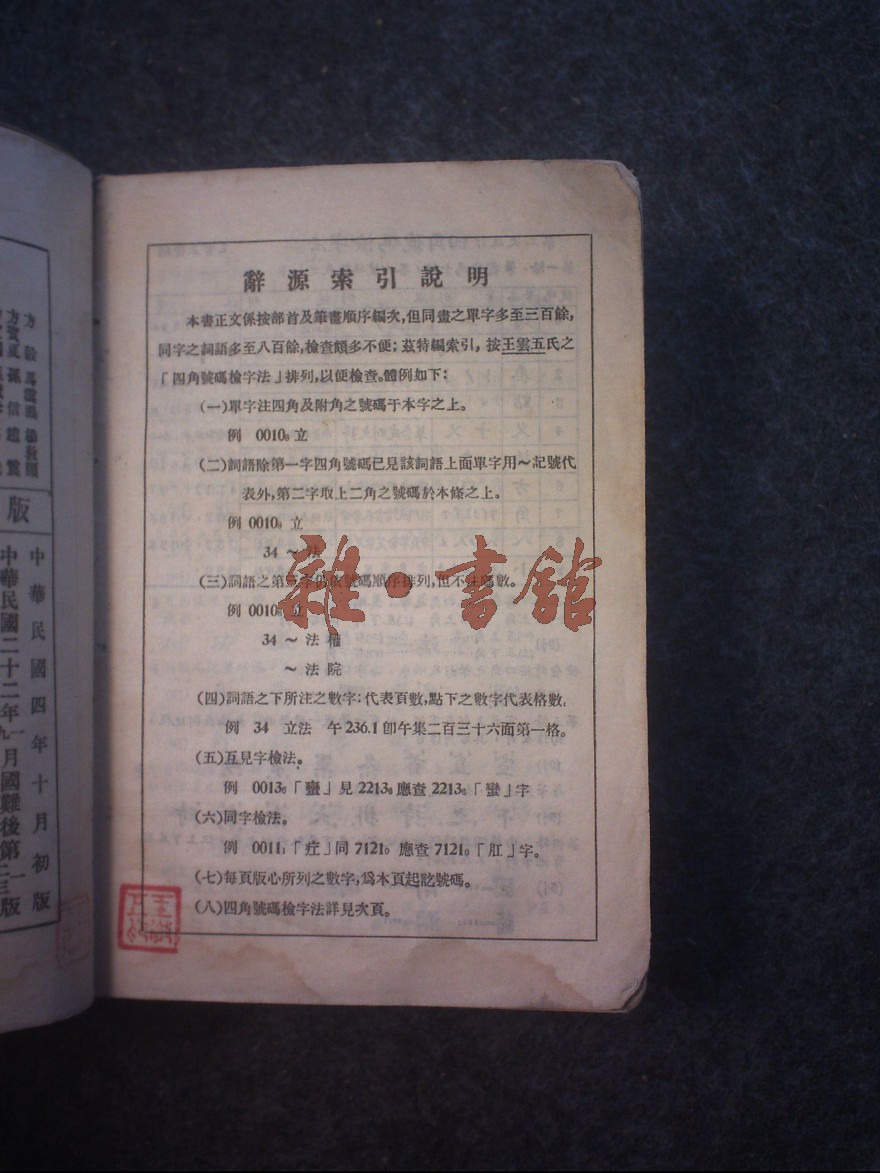 辭源索引說明
本書正文係按部首及筆畫順序編次,但同畫之單字多至三百餘,
同字之詞語多至八百餘,檢查頗多不便;茲特編索引,按王雲五氏之
「四角號碼檢字法」排列,以便檢查。體例如下:
(一)單字注四角及附角之號碼于本字之上。
例 0010₈ 立
(二)詞語除第一字四角號碼已見該詞語上面單字用～記號代
表外,第二字取上二角之號碼於本條之上。
例 0010₈ 立
34 ～ 法
(三)詞語之第三字仍依號碼順序排列,但不注碼數。
例 0010₈ 立
34 ～ 法權
～ 法院
(四)詞語之下所注之數字:代表頁數,點下之數字代表格數;
例 34 立法 午236.1 卽午集二百三十六面第一格。
(五)互見字檢法。
例 0013₆「蠻」見 2213₆ 應查 2213₆「蠻」字
(六)同字檢法。
例 0011₁「疘」同 7121₀ 應查 7121₀「肛」字。
(七)每頁版心所列之數字,爲本頁起訖號碼。
(八)四角號碼檢字法詳見次頁。
雜·書館
版
中華民國四年十月初版
中華民國二十二年
月國難後第
版